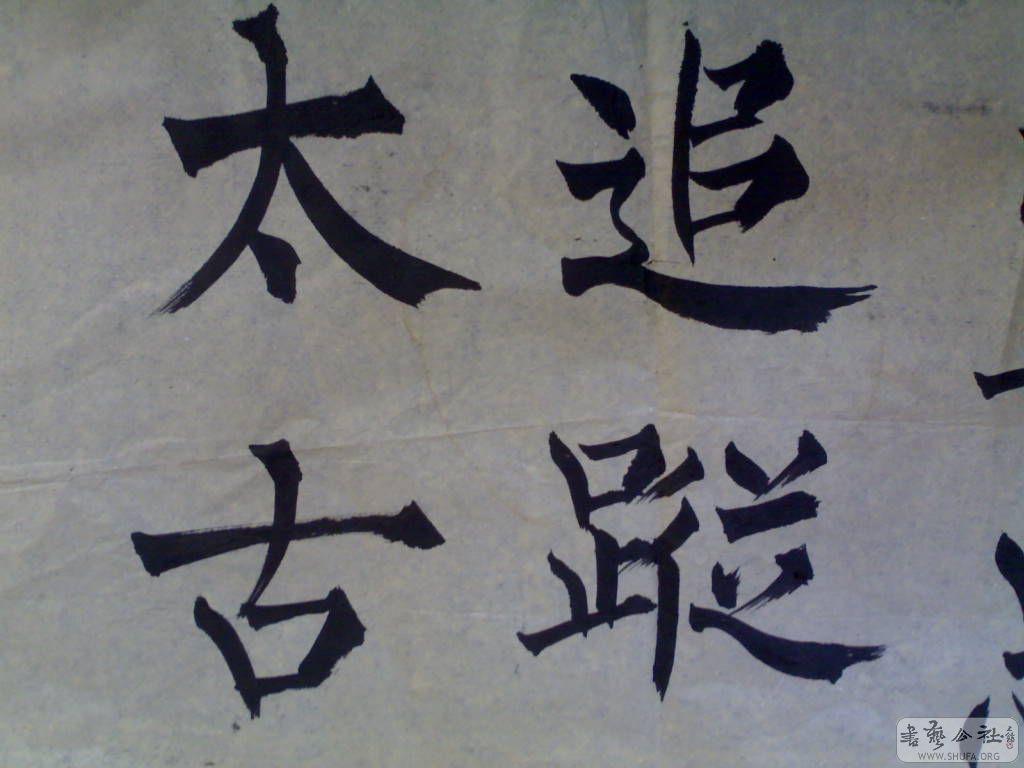 追蹤
太古
書藝公社
WWW.SHUFA.ORG